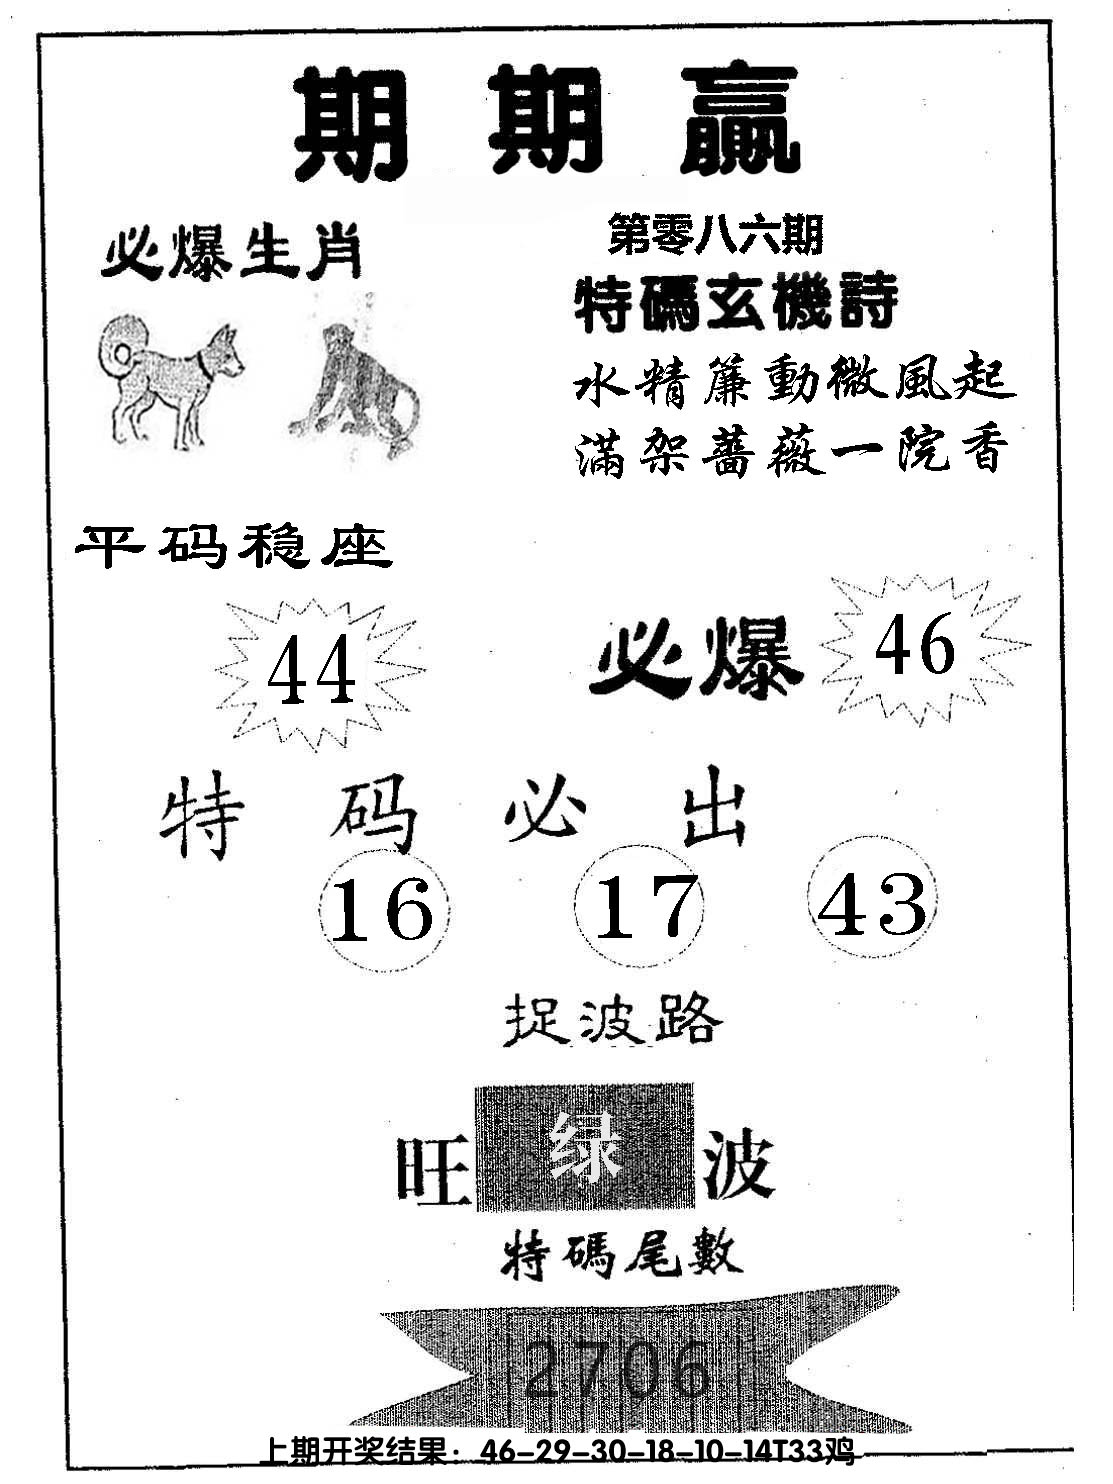 期期赢
必爆生肖
第零八六期
特碼玄機詩
水精簾動微風起
滿架薔薇一院香
平码稳座
44
必爆 46
特码必出
16 17 43
捉波路
旺 绿 波
特碼尾數
2706
上期开奖结果：46-29-30-18-10-14T33鸡